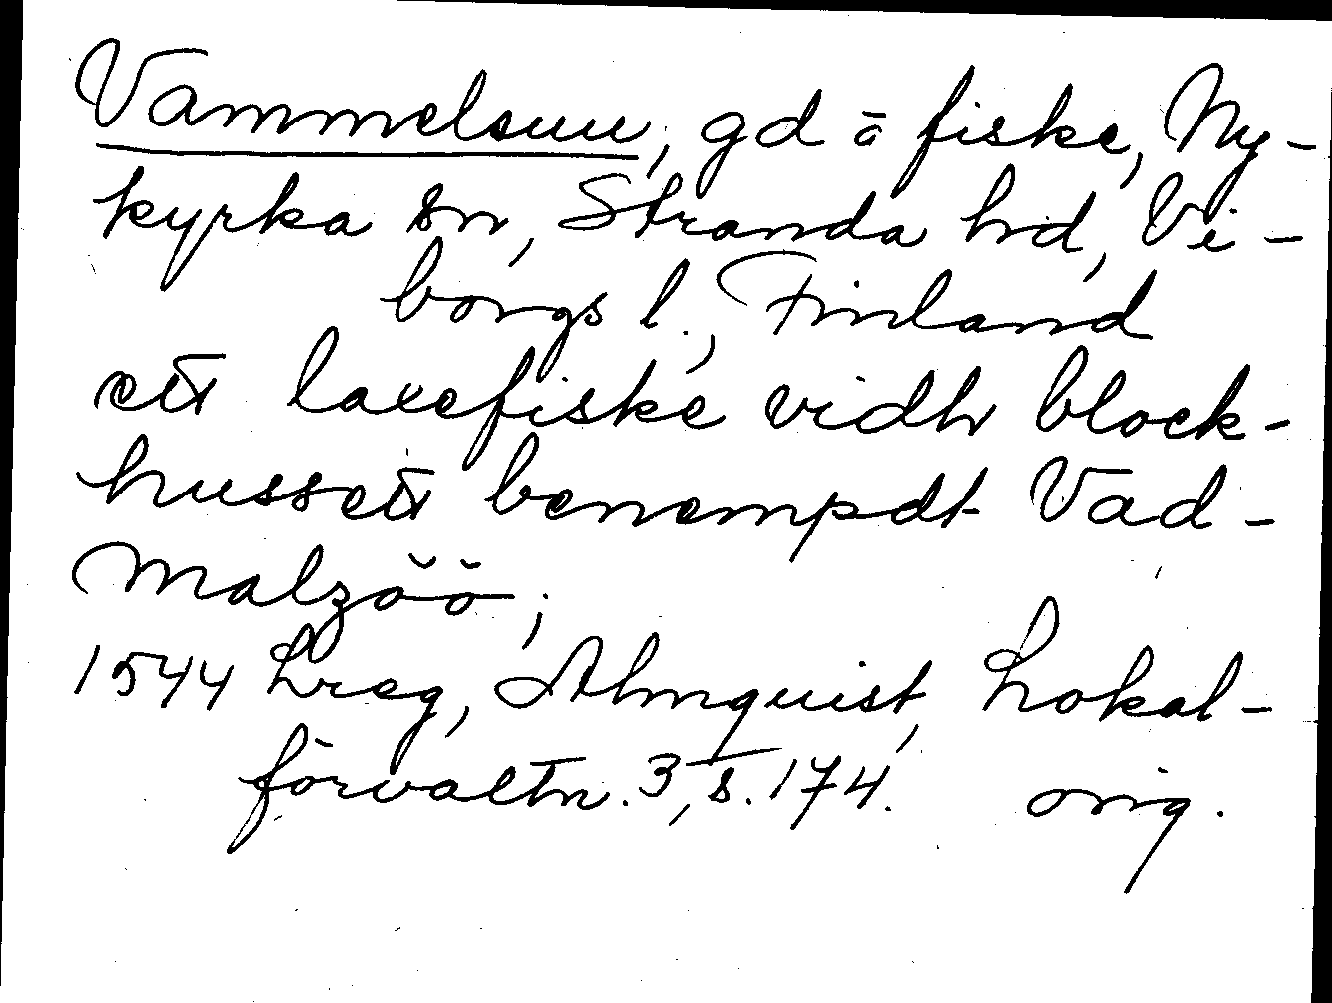 Vammelsuu, gd ō fiske, Ny-
kyrka sn, Stranda hd, Vi-
borgs l., Finland
ett laxefiske vidh block-
hussett benempdt Vad-
malzöö;
1544 Lreg, Almquist, Lokal-
förvaltn. 3, s. 174. orig.